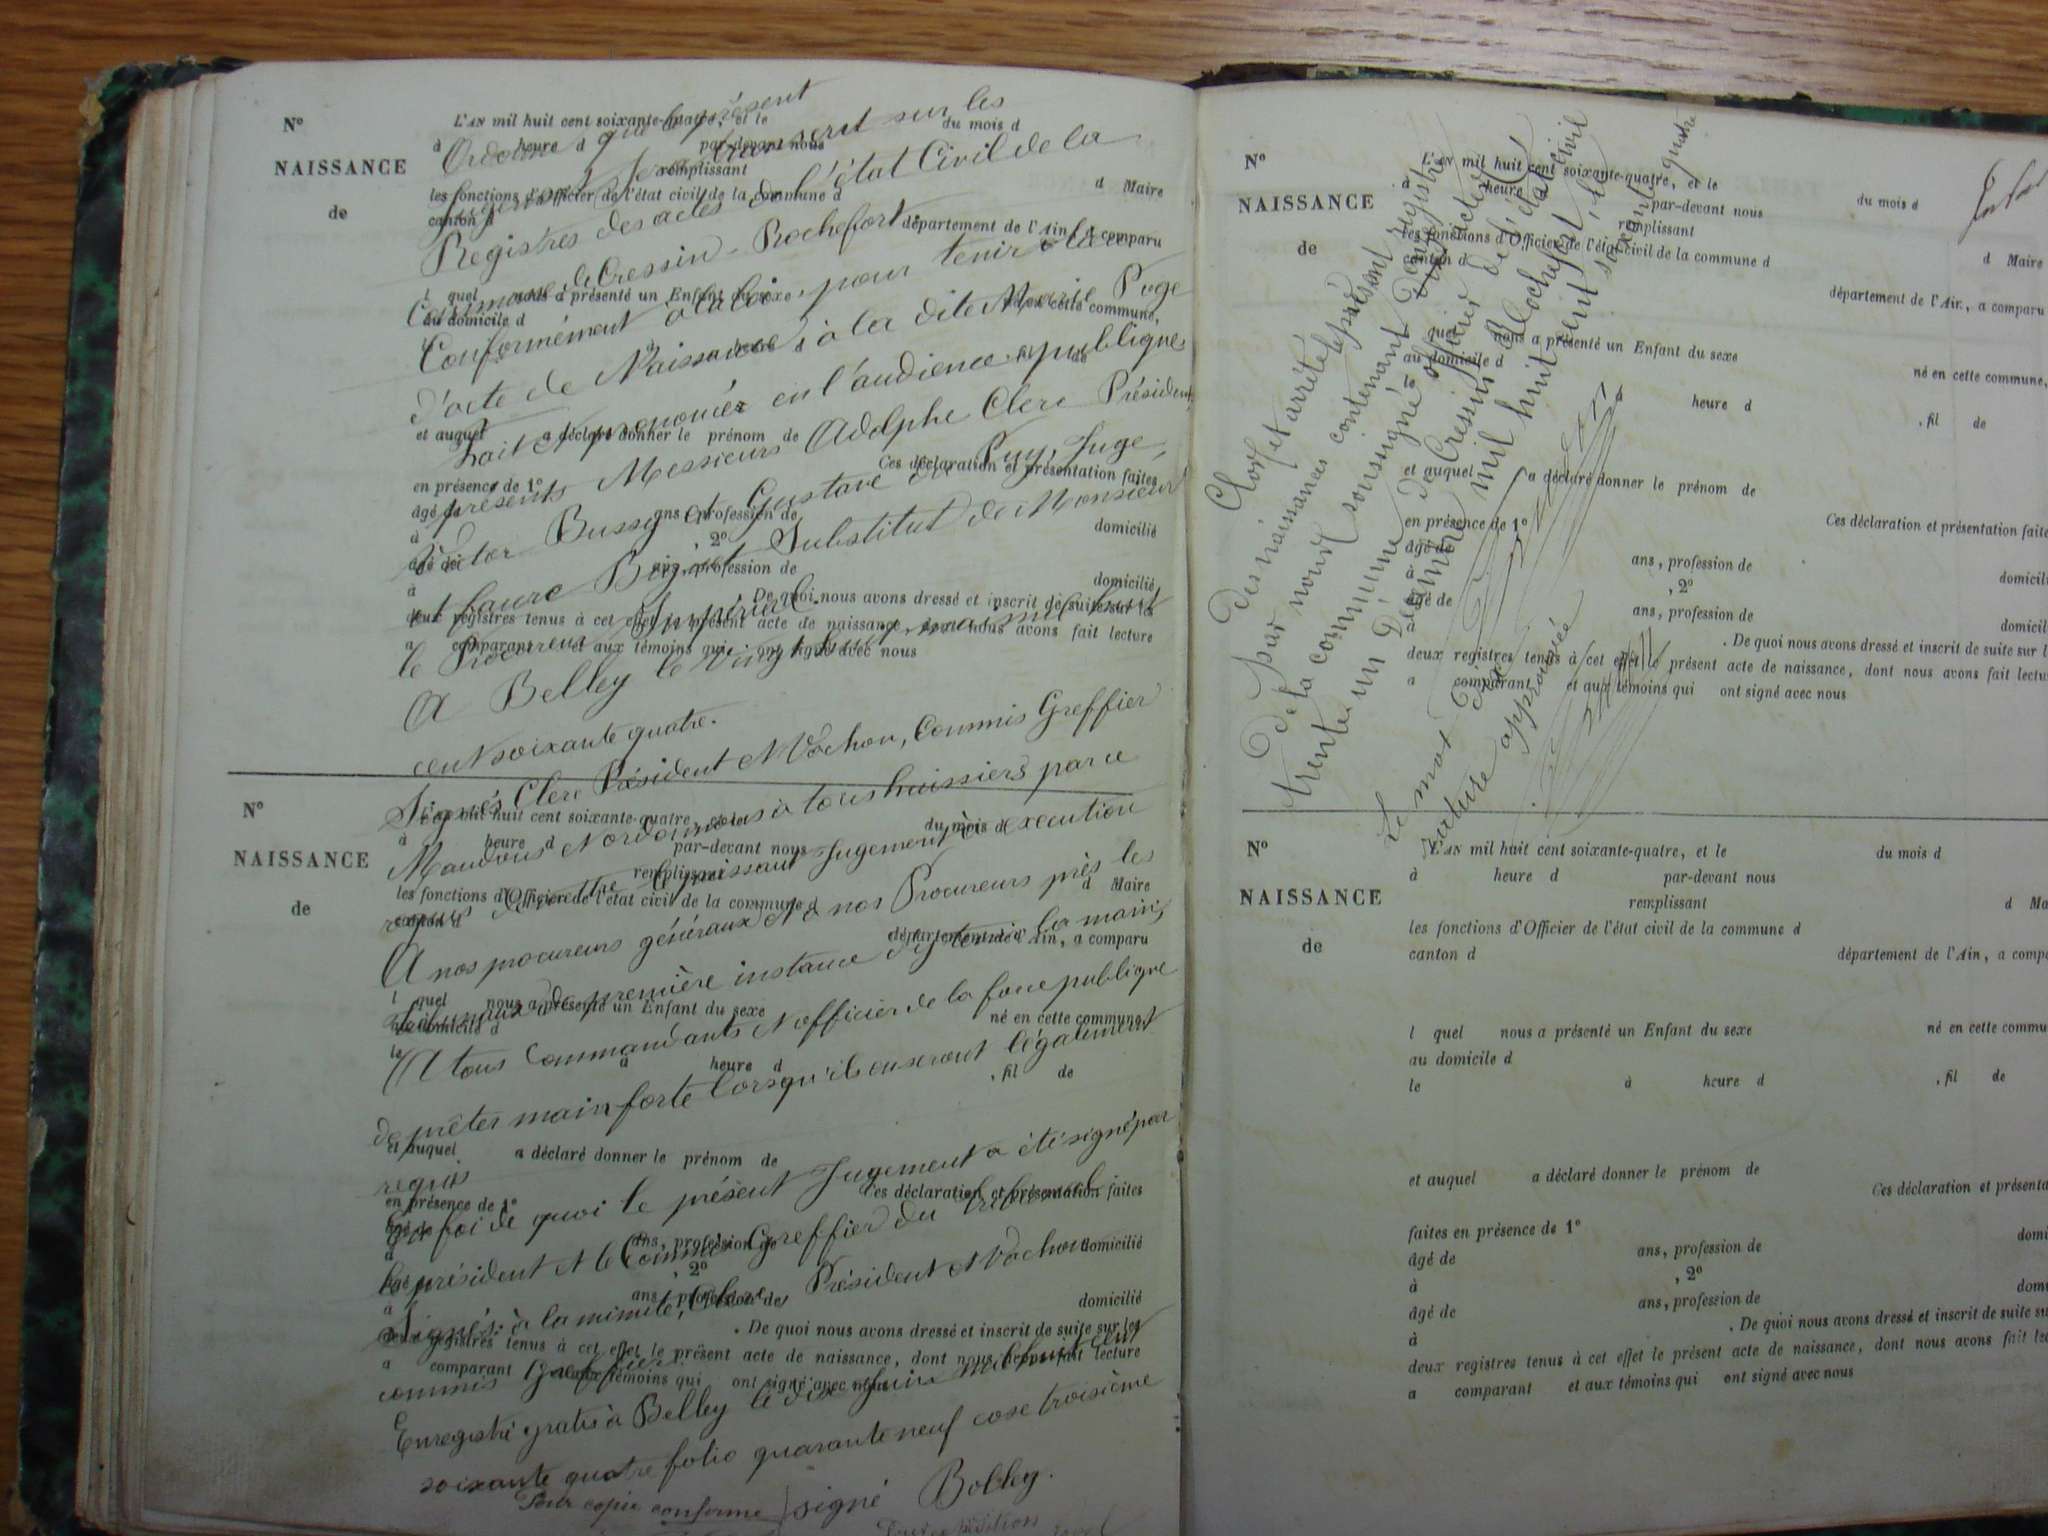 Nº
NAISSANCE
de
L'AN mil huit cent soixante-quatre, et le
du mois d
à heure d par-devant nous
remplissant
les fonctions d'Officier de l'état civil de la commune d
d Maire
canton d
département de l'Ain, a comparu
l quel nous a présenté un Enfant du sexe
né en cette commune,
au domicile d
et auquel a déclaré donner le prénom de
Ces déclaration et présentation faites
en présence de 1º
âgé de
ans, profession de
domicilié
à
, 2º
âgé de
ans, profession de
domicilié
à
. De quoi nous avons dressé et inscrit de suite sur les
deux registres tenus à cet effet le présent acte de naissance, dont nous avons fait lecture
a comparant et aux témoins qui ont signé avec nous
Ordonne que le présent
Jugement sera transcrit sur les
Registres des actes de l'état Civil de la
Commune de Cressin-Rochefort
Conformément à la loi, pour tenir lieu
d'acte de Naissance à la dite Marie Puge
Fait et prononcé en l'audience publique
présents Messieurs Adolphe Clerc Président,
Victor Bussy et Gustave du Puy, Juge,
et Faure Biguet Substitut de Monsieur
le Procureur Impérial.
A Belley le vingt huit mai mil huit
cent soixante quatre.
Signés Clerc Président et Vachon, Commis Greffier
Mandons et ordonnons à tous huissiers par ce
requis de mettre le présent Jugement à exécution
A nos procureurs généraux et à nos Procureurs près les
Tribunaux de première instance d'y tenir la main,
A tous Commandants et officier de la force publique
de prêter main forte lorsqu'ils en seront légalement
requis
En foi de quoi le présent Jugement a été signé par
le président et le Commis Greffier du tribunal
Signés à la minute, Clerc Président et Vachon
commis Greffier.
Enregistré gratis à Belley le dix juin mil huit cent
soixante quatre folio quarante neuf case troisième
signé Bolley.
Pour copie conforme
Nº
NAISSANCE
de
L'AN mil huit cent soixante-quatre, et le
du mois d
à heure d par-devant nous
remplissant
les fonctions d'Officier de l'état civil de la commune d
d Maire
canton d
département de l'Ain, a comparu
l quel nous a présenté un Enfant du sexe
né en cette commune,
au domicile d
le à heure d
, fil de
et auquel a déclaré donner le prénom de
Ces déclaration et présentation faites
en présence de 1º
ans, profession de
domicilié
à
, 2º
ans, profession de
domicilié
à
. De quoi nous avons dressé et inscrit de suite sur les
deux registres tenus à cet effet le présent acte de naissance, dont nous avons fait lecture
a comparant et aux témoins qui ont signé avec nous
Nº
NAISSANCE
de
L'AN mil huit cent soixante-quatre, et le
du mois d
à heure d
par-devant nous
remplissant
les fonctions d'Officier de l'état civil de la commune d
d Maire
canton d
département de l'Ain, a comparu
quel nous a présenté un Enfant du sexe
né en cette commune,
au domicile d
le
à heure d
, fil de
et auquel a déclaré donner le prénom de
Ces déclaration et présentation faite
en présence de 1º
âgé de
ans, profession de
domicili
à
, 2º
âgé de
ans, profession de
domicili
. De quoi nous avons dressé et inscrit de suite sur l
deux registres tenus à cet effet le présent acte de naissance, dont nous avons fait lectu
a comparant et aux témoins qui ont signé avec nous
Clos et arrêté le présent registre
des naissances contenant actes
par nous soussigné officier de l'état civil
de la commune de Cressin Rochefort, le
trente un Décembre mil huit cent soixante quatre
Le mot
rature approuvée
Nº
NAISSANCE
de
L'AN mil huit cent soixante-quatre, et le
du mois d
à heure d par-devant nous
remplissant
d Ma
les fonctions d'Officier de l'état civil de la commune d
canton d
département de l'Ain, a comp
l quel nous a présenté un Enfant du sexe
né en cette commu
au domicile d
le à heure d
, fil de
et auquel a déclaré donner le prénom de
Ces déclaration et présenta
faites en présence de 1º
âgé de
ans, profession de
domi
à
, 2º
âgé de
ans, profession de
dom
à
. De quoi nous avons dressé et inscrit de suite su
deux registres tenus à cet effet le présent acte de naissance, dont nous avons fait le
a comparant et aux témoins qui ont signé avec nous